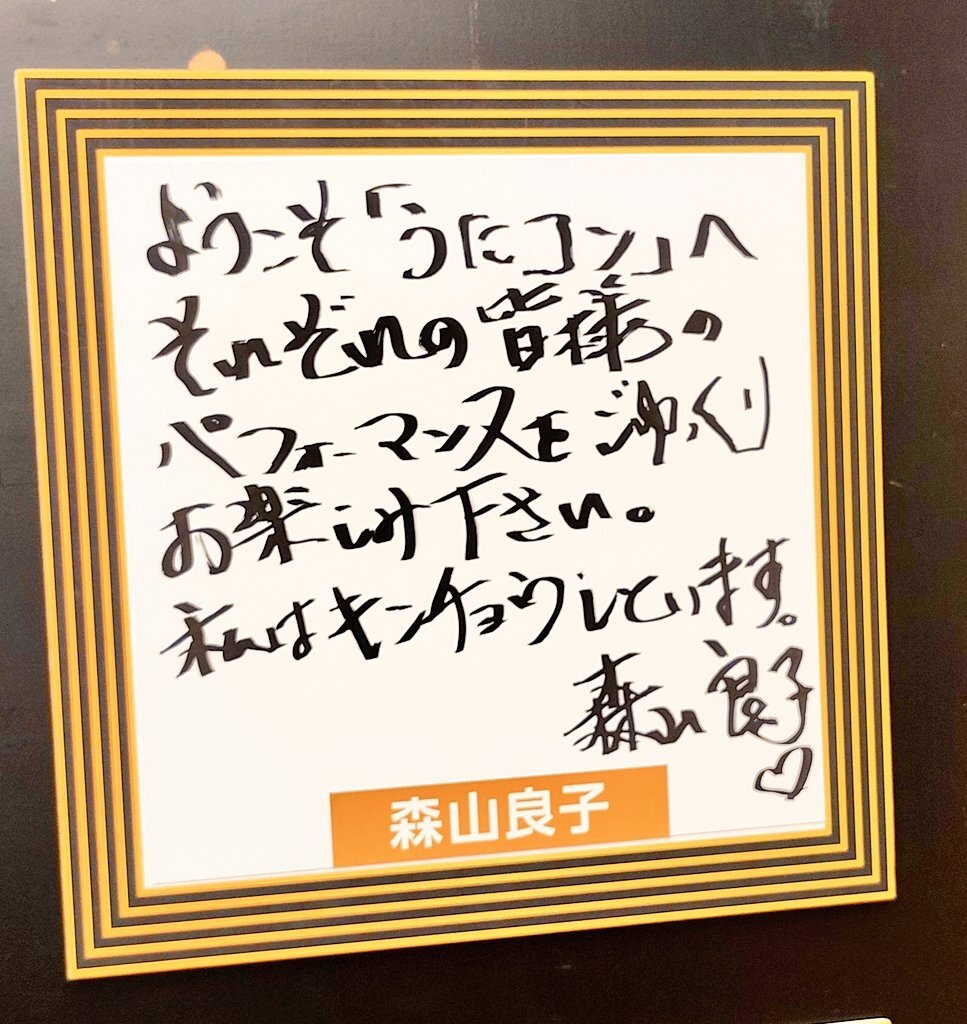 ようこそ「うたコン」へ
それぞれの皆様の
パフォーマンスをごゆっくり
お楽しみ下さい。
私はキンチョウしています。
森山良子♡
森山良子